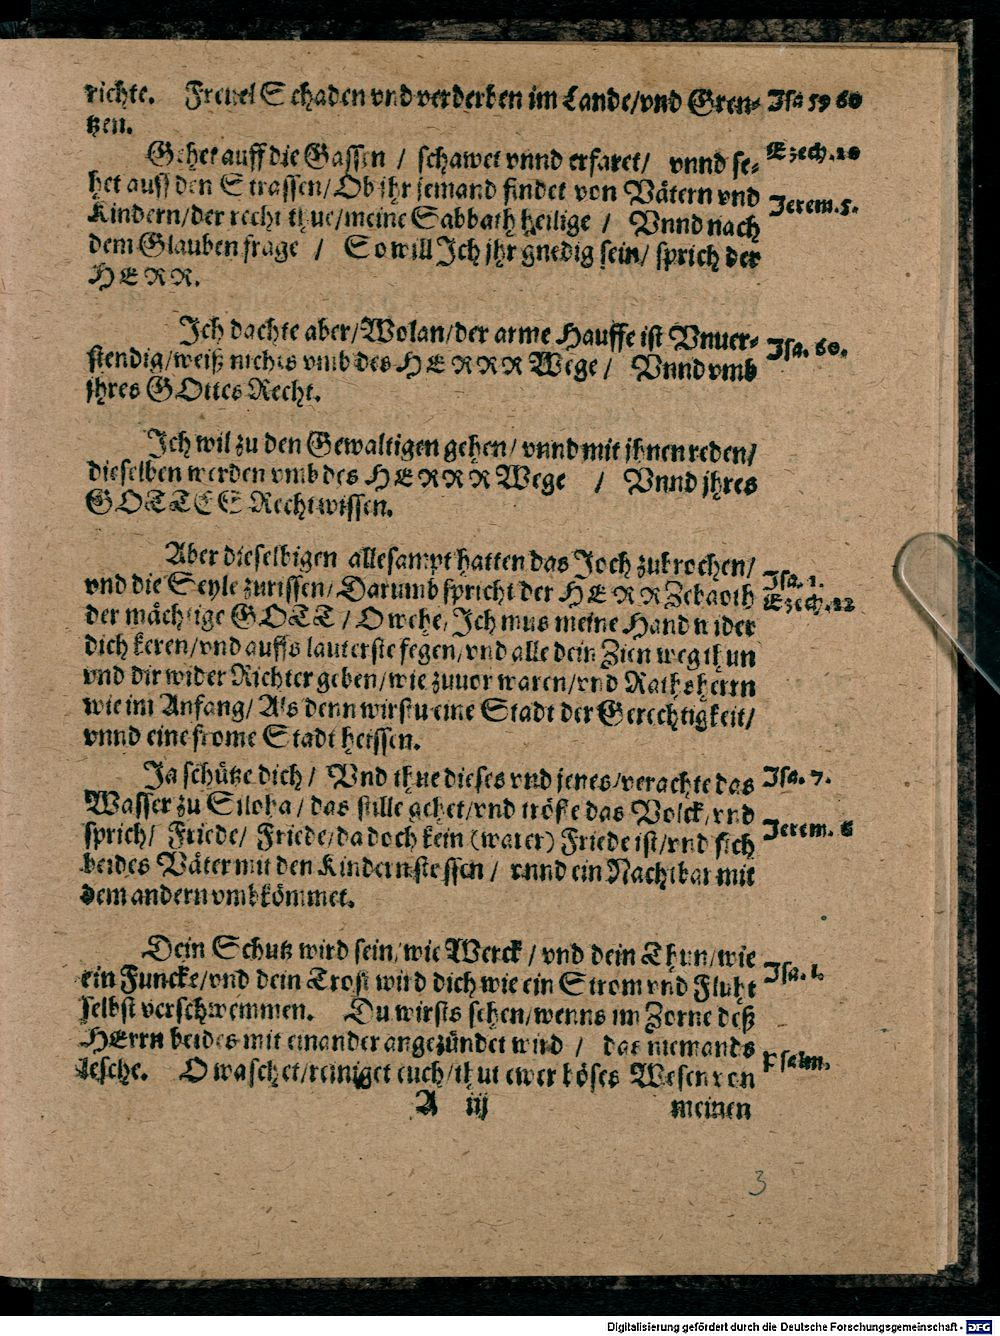 richte. Freuel Schaden vnd verderben im Lande/vnd Gren⸗ Isa 59 60
tzen.
Gehet auff die Gassen / schawet vnnd erfaret/ vnnd se⸗ Ezech.20
het auff den Strassen/Ob jhr jemand findet von Vätern vnd
Kindern/der recht thue/meine Sabbath heilige / Vnnd nach Jerem.5.
dem Glauben frage / So will Ich jhr gnedig sein/ sprich der
HERR.
Ich dachte aber/Wolan/der arme Hauffe ist Vnuer⸗ Isa. 60.
stendig/weiß nichts vmb des HERRR Wege / Vnnd vmb
jhres GOttes Recht.
Ich wil zu den Gewaltigen gehen/ vnnd mit jhnen reden/
dieselben werden vmb des HERRR Wege / Vnnd jhres
GOTTES Recht wissen.
Aber dieselbigen allesampt hatten das Joch zubrochen/
vnd die Seyle zurissen/Darumb spricht der HERR Zebaoth Isa. 1.
der mächtige GOTT / O wehe, Ich mus meine Hand wider Ezech.22
dich keren/vnd auffs lauterste fegen/vnd alle dein Zien weg thun
vnd dir wider Richter geben/wie zuuor waren/vnd Rathsherrn
wie im Anfang/ Als denn wirstu eine Stadt der Gerechtigkeit/
vnnd eine frome Stadt heissen.
Ja schütze dich / Vnd thue dieses vnd jenes/verachte das Isa. 7.
Wasser zu Siloha / das stille gehet/vnd tröste das Volck/vnd
sprich/ Friede/ Friede/da doch kein (warer) Friede ist/vnd sich Jerem. 6
beides Väter mit den Kindern stossen / vnnd ein Nachtbar mit
dem andern vmbkömmet.
Dein Schutz wird sein/wie Werck / vnd dein Thun/wie
ein Funcke/vnd dein Trost wird dich wie ein Strom vnd Fluht Isa. 1.
selbst verschwemmen. Du wirsts sehen/wenns im Zorne deß
HErrn beides mit einander angezündet wird / das niemands
lesche. O waschet/reiniget euch/thut ewer böses Wesen von Psalm.
A iij meinen
3
Digitalisierung gefördert durch die Deutsche Forschungsgemeinschaft - DFG